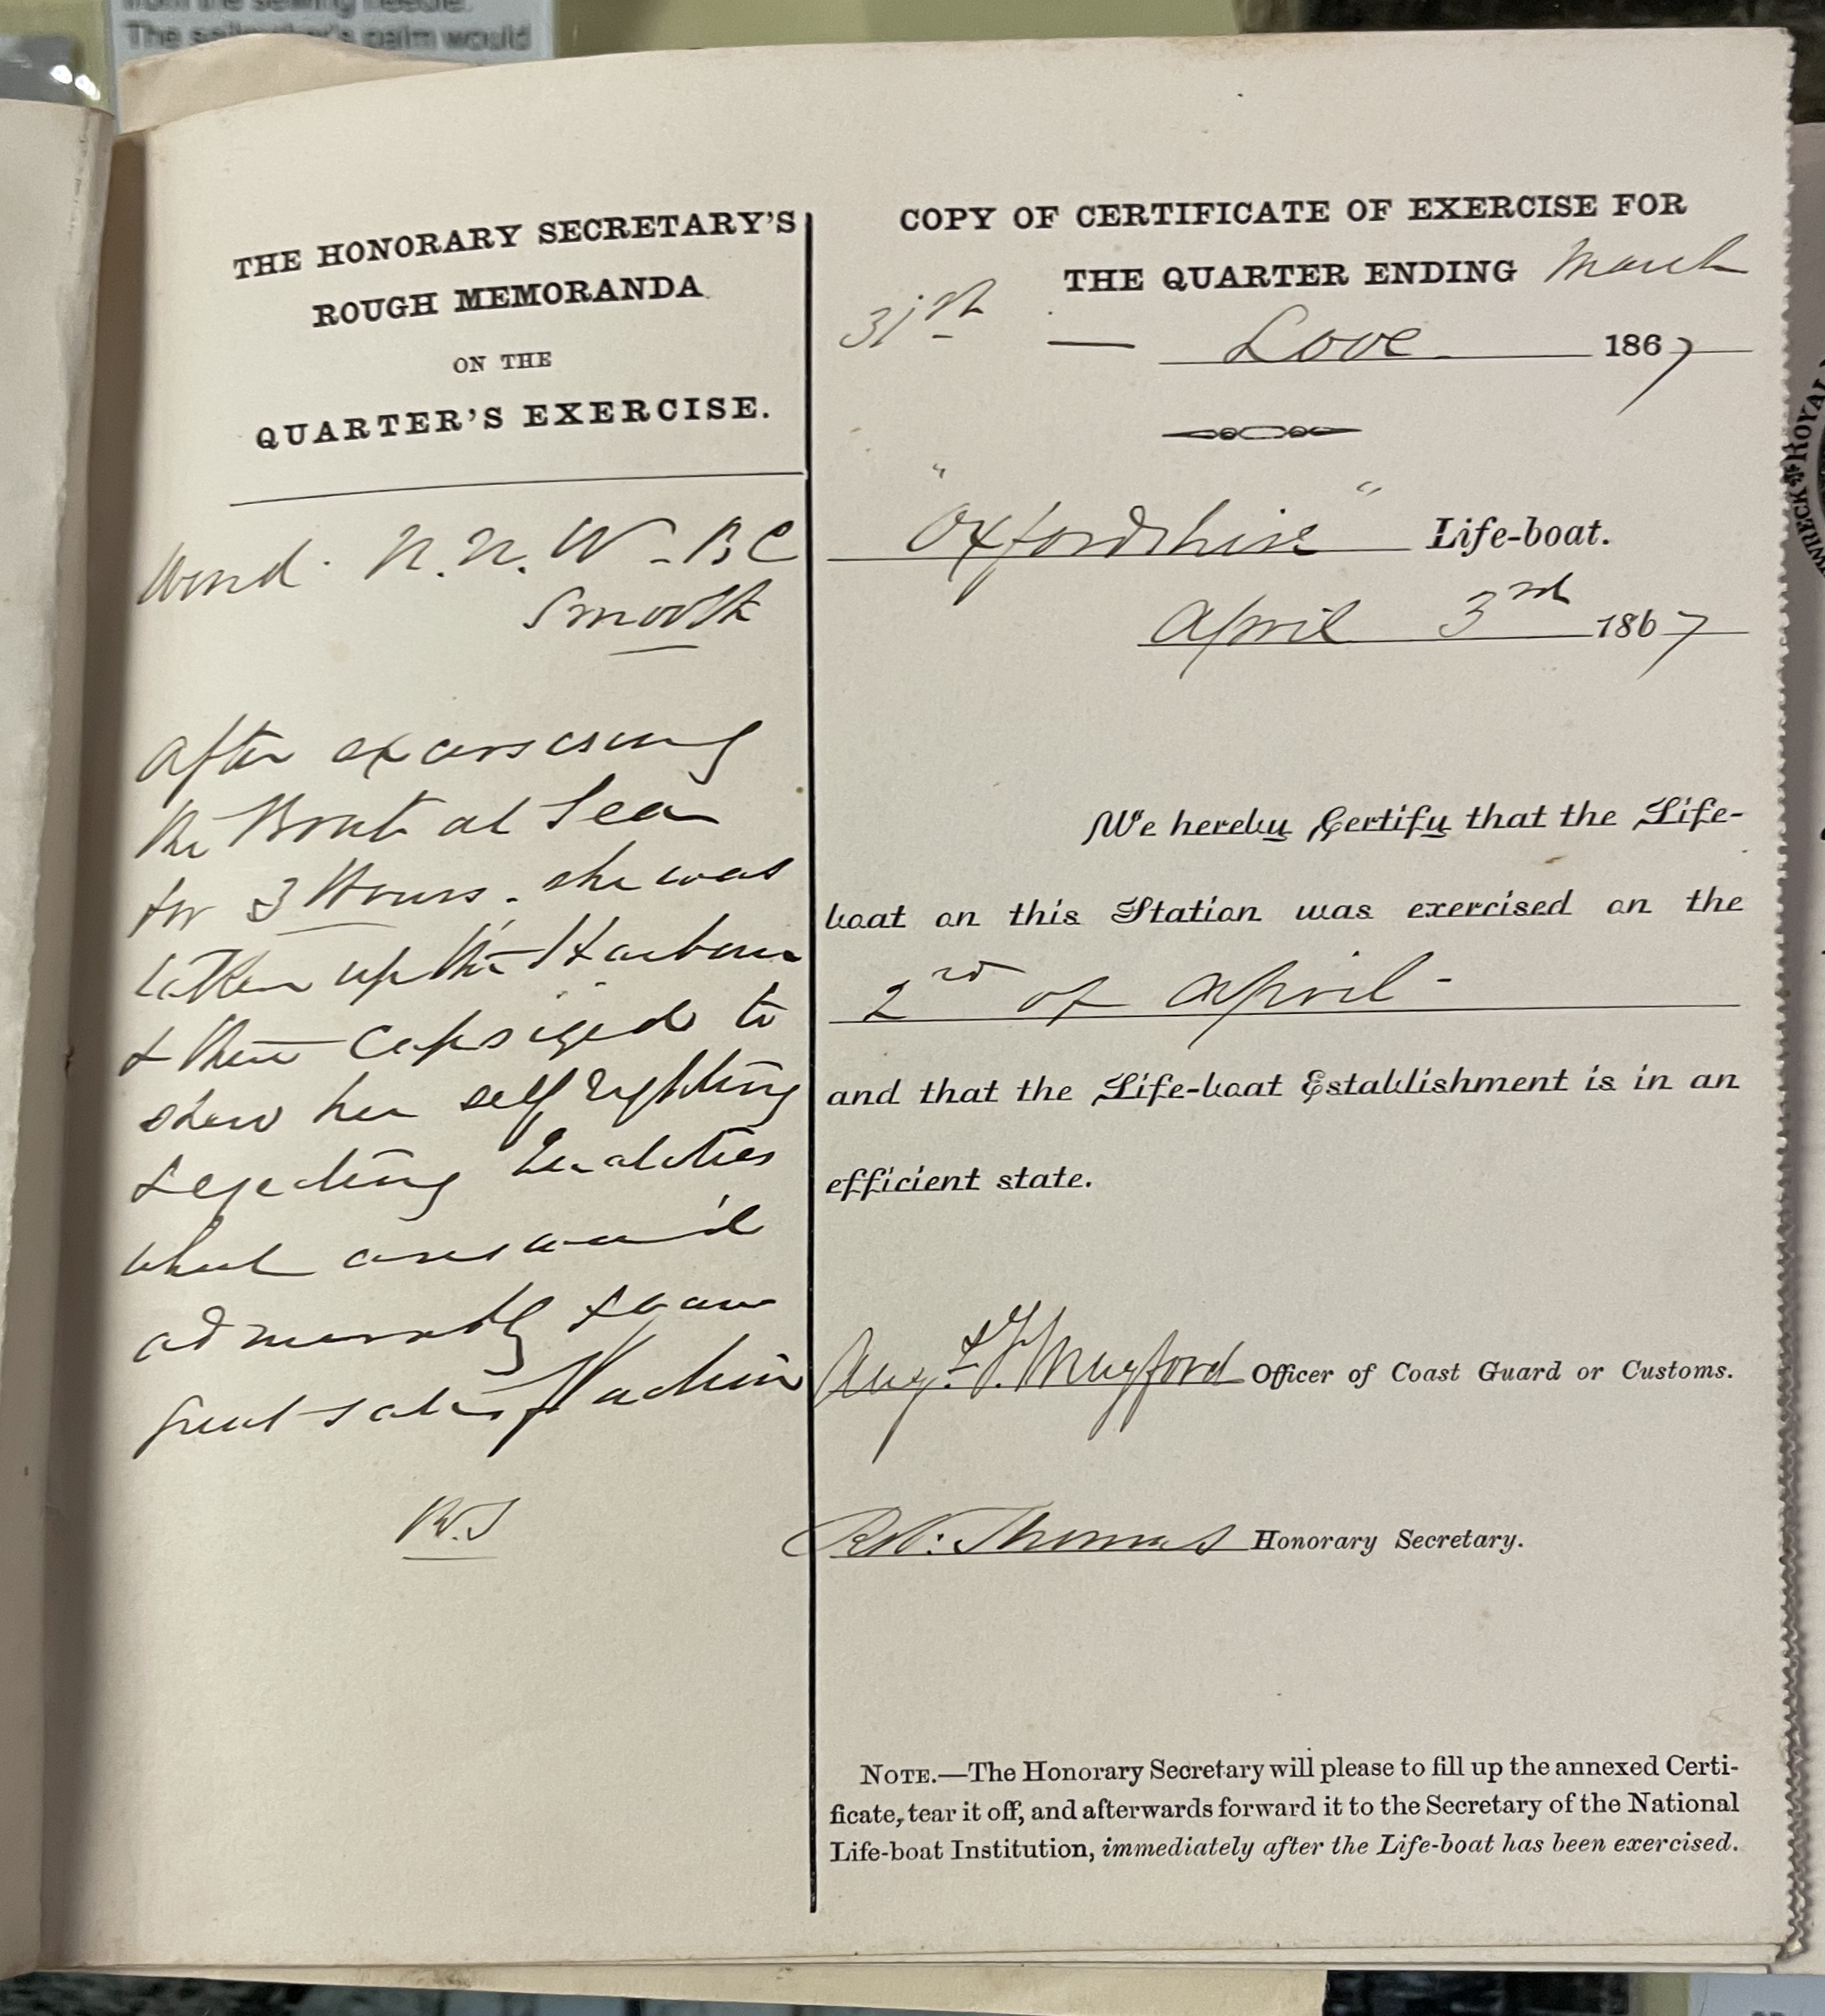 from the sewing needle.
The sailmaker's palm would
THE HONORARY SECRETARY'S
ROUGH MEMORANDA
ON THE
QUARTER'S EXERCISE.
Wind. N.N.W - BC
Smooth
after exersising
the Boat at Sea
for 3 Hours. she was
taken up the Harbour
& then Capsized to
shew her self righting
& ejecting Qualities
which answer'd
admirably & gave
great satisfaction
R.T
COPY OF CERTIFICATE OF EXERCISE FOR
THE QUARTER ENDING March
31st — Looe 1867
"Oxfordshire" Life-boat.
April 3rd 1867
We hereby Certify that the Life-
boat on this Station was exercised on the
2nd of April -
and that the Life-boat Establishment is in an
efficient state.
Mugford Officer of Coast Guard or Customs.
Thomas Honorary Secretary.
NOTE.—The Honorary Secretary will please to fill up the annexed Certi-
ficate, tear it off, and afterwards forward it to the Secretary of the National
Life-boat Institution, immediately after the Life-boat has been exercised.
WRECK ROYAL